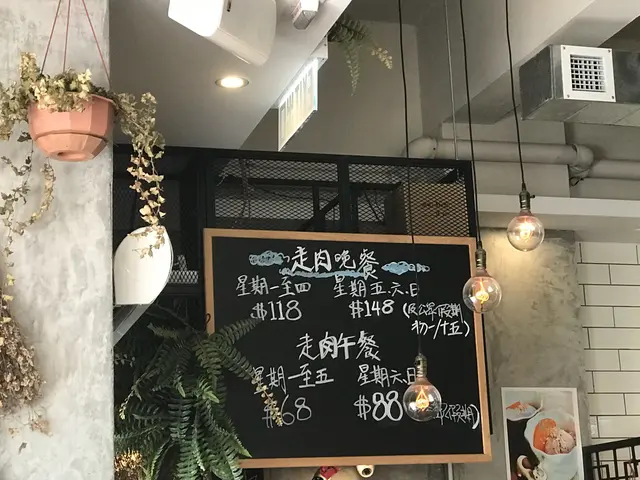 走肉晚餐
星期一至四 星期五六日
$118 $148 (及公眾假期
初一/十五)
走肉午餐
星期一至五 星期六日
$68 $88 (公眾假期)